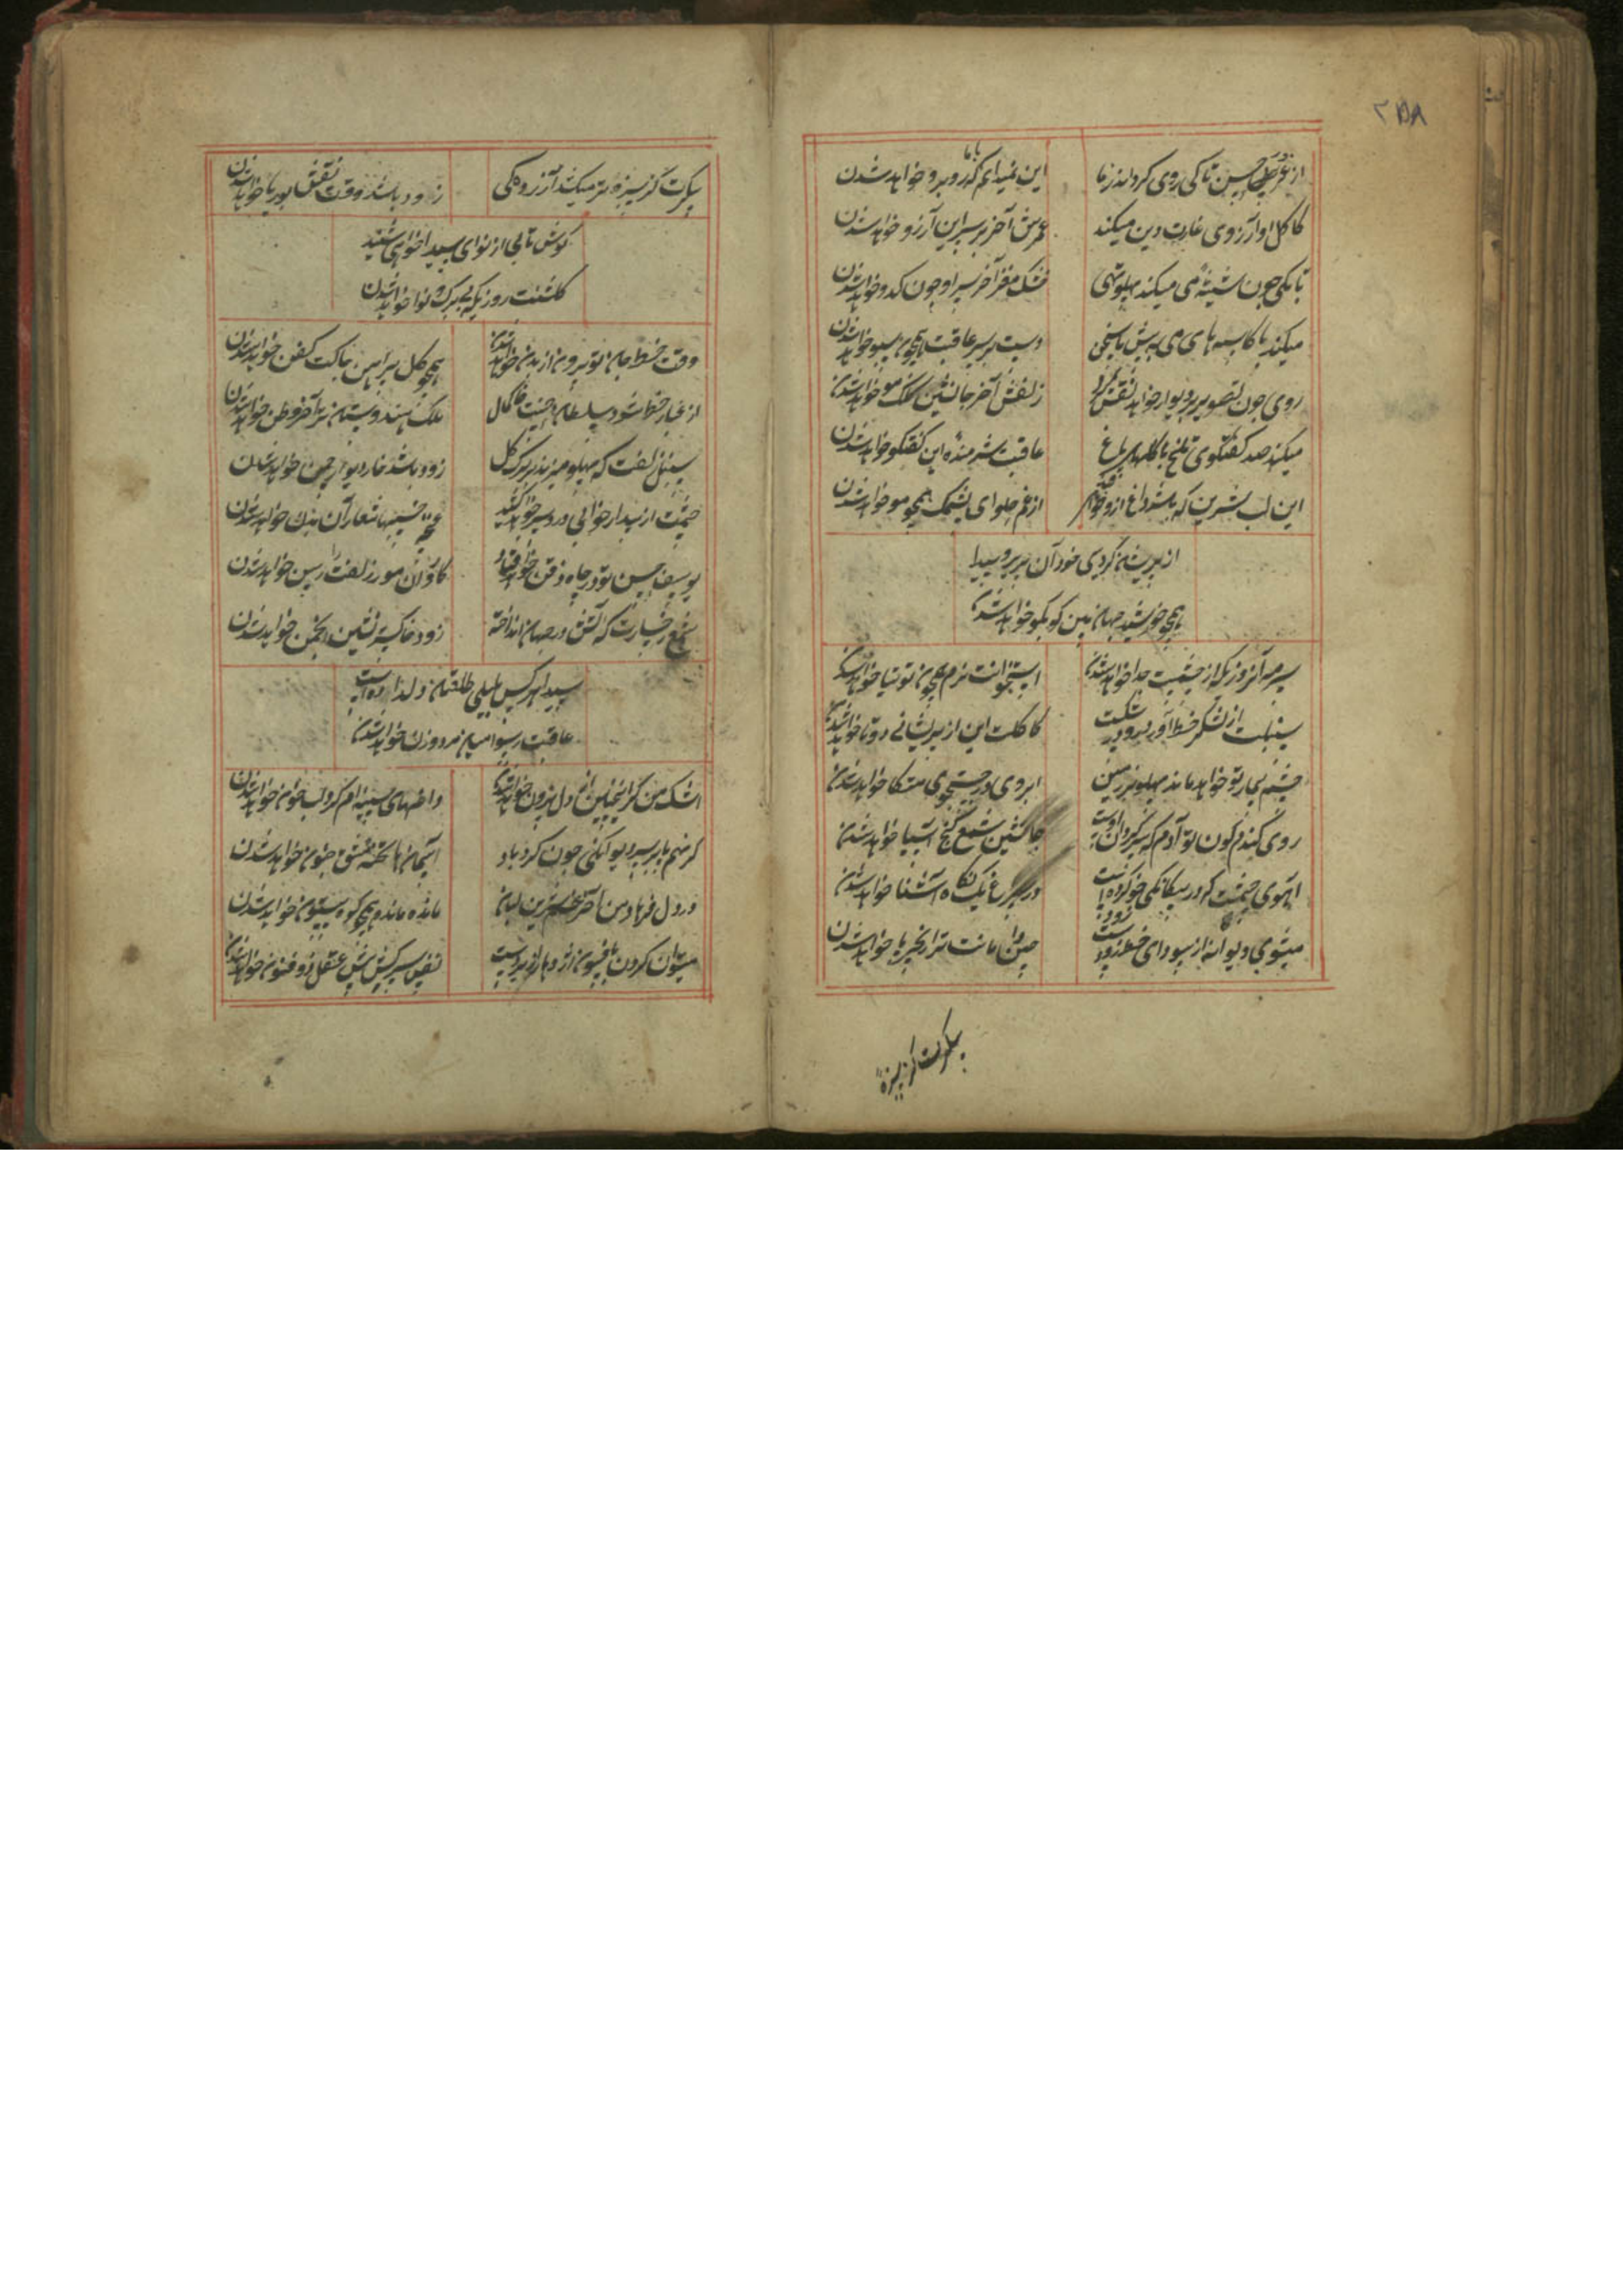 ۲۵۸
از غرور حسن تا کی روی گرداند ز ما
این نمیدانم که با ما روبرو خواهد شدن
کاکل او آرزوی غارت دین میکند
عمر من آخر بر سر این آرزو خواهد شدن
تا بکی چون شیشهٔ می میکند پهلو تهی
خشک مغز آخر سر او چون کدو خواهد شدن
میکند با کاسه های می به پیش
دست بر سر عاقبت همچون سبو خواهد شدن
روی چون تصویر بر دیوار خواهد نقش کرد
زلفش آخر جانشین کلک مو خواهد شدن
میکند صد گفتگوی تلخ با گلهای باغ
عاقبت شرمنده این گفتگو خواهد شدن
این لب شیرین که باشد داغ ازو
از غم حلوای پشمک همچو مو خواهد شدن
از پریشان گردی خود آن پریرو سیدا
همچو خورشید جهان بین کو بکو خواهد شدن
سرمه آنروزیکه از چشمت جدا خواهد شدن
استخوانت نرم همچون توتیا خواهد شدن
سنبلت از لشکر خط آورد رو در شکست
کاکلت این از پریشانی دوتا خواهد شدن
چشم بیمار تو خواهد ماند پهلو بر زمین
ابروی در جستجوی متکا خواهد شدن
روی گندم گون تو آدم که
جانشین شمع کنج آسیا خواهد شدن
آهوی چشمت که در بیگانگی خو کرده است
در سراغ یک نگاه آشنا خواهد شدن
میشوی دیوانه از سودای خط زود
چین دامانت ترا زنجیر پا خواهد شدن
پیکرت کز سبزه تر میکشد آزردگی
زود باشد وقت نقش بوریا خواهد شدن
گوش تا بی از نوای سیدا خواهی شنید
گلشنت روزیکه بی برگ و نوا خواهد شدن
وقت خط جان تو بیرون از بدن خواهد شدن
همچو گل پیراهن چاکت کفن خواهد شدن
از غبار خط شود سلطان حسنت خاکمال
ملک هندوستان ترا آخر وطن خواهد شدن
سنبل زلفت که پهلو میزند بر برگ گل
زود باشد خار دیوار چمن خواهد شدن
چشمت از بیدار خوابی درد سر خواهد کشید
غنچه خسپیها شعار آن بدن خواهد شدن
یوسف حسن تو در چاه ذقن خواهد فتاد
کاروان مور زلفت را رسن خواهد شدن
شمع رخسارت که آتش در جهان انداخته
زود خاکستر نشین انجمن خواهد شدن
سیدا هر کس بلیلی طلعتان دل داده است
عاقبت رسوا میان مرد و زن خواهد شدن
اشک من گر اینچنین از دل برون خواهد شدن
داغهای سینه ام گرداب خون خواهد شدن
گر نهم پا بر سر دیوانگی چون گردباد
آسمان ها تخته مشق جنون خواهد شدن
درد دل فرهاد من آخر غم شیرین لبان
مانده مانده همچو کوه بیستون خواهد شدن
میتوان کردن بافسون اژدها را زیر دست
نفس سرکش پیش عقل ذو فنون خواهد شدن
پیکرت کز سبزه